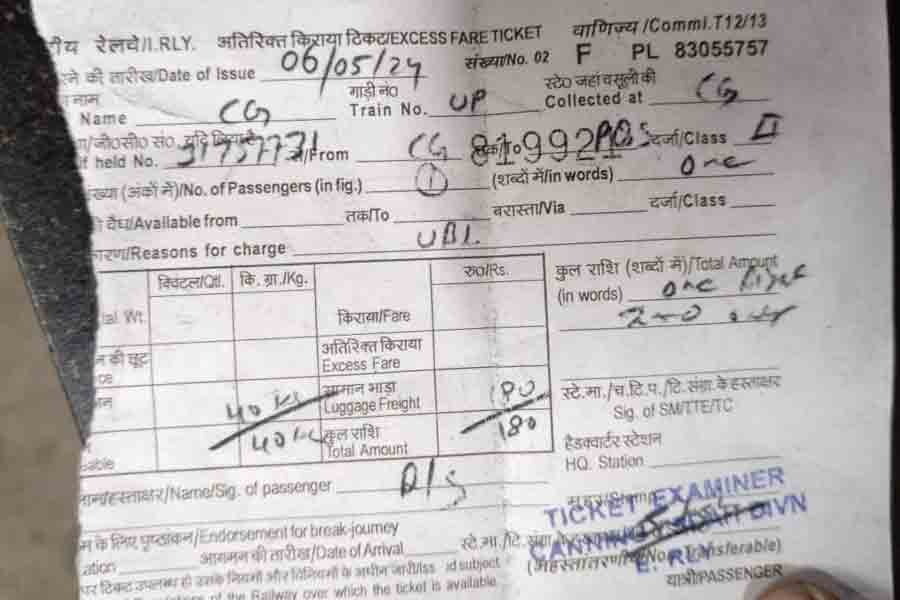 ीय रेलवे/I.RLY. अतिरिक्त किराया टिकट/EXCESS FARE TICKET वाणिज्य /Comml.T12/13
संख्या/No. 02 F PL 83055757
रने की तारीख/Date of Issue 06/05/24
नाम गाड़ी नं० स्टे० जहां वसूली की
Name CG Train No. UP Collected at CG
/जी०सी० सं० यदि
f held No. 31737731 /From CG To 819921 दर्जा/Class II
ख्या (अंकों में)/No. of Passengers (in fig.) 1 (शब्दों में/in words) One
वैध/Available from तक/To बरास्ता/Via दर्जा/Class
कारण/Reasons for charge UBL
क्विंटल/Qtl. कि. ग्रा./Kg. रु०/Rs. कुल राशि (शब्दों में)/Total Amount
(in words) one
tal Wt. किराया/Fare
न की छूट अतिरिक्त किराया
ce Excess Fare
40 kg सामान भाड़ा 180 स्टे.मा./च.टि.प./टि.संग्रा.के हस्ताक्षर
Luggage Freight Sig. of SM/TTE/TC
40 kg कुल राशि 180 हैडक्वार्टर स्टेशन
able Total Amount HQ. Station
नाम/हस्ताक्षर/Name/Sig. of passenger मुहर/Stamp
TICKET EXAMINER
म के लिए पृष्ठांकन/Endorsement for break-journey
CANNING DIVN
ation आगमन की तारीख/Date of Arrival स्टे.मा./टि.सं
E. RLY
(अहस्तांतरणीय/Not Transferable)
पर टिकट उपलब्ध हो उसके नियमों और विनियमों के अधीन जारी/Iss id subject
यात्री/PASSENGER
of the Railway over which the ticket is available.